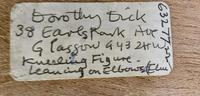 Dorothy Dick
38 Earls Park Ave
Glasgow G43 2HW
Kneeling Figure
leaning on Elbows/Elm